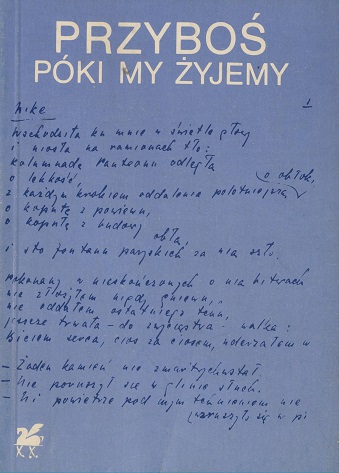 PRZYBOŚ
PÓKI MY ŻYJEMY
Nike
1
Wschodziła ku mnie w świetle głowy
i niosła na ramionach tło:
kolumnadę Panteonu odległą
o lekkość, o obłok,
z każdym krokiem oddalenia
o kopułę z powiewu,
o kopułę z budowy
obłą,
i sto fontann paryskich za nią szło.
pokonany w nieskończonych o nią bitwach
nie złożyłem nigdy gniewu,
nie oddałem ostatniego tchu,
jeszcze trwała - do zwycięstwa - walka:
Biciem serca, cios za ciosem, uderzałem w
- Żaden kamień nie zmartwychwstał.
- Nie poruszył się w glinie słuch.
- I powietrze pod mym tchnieniem nie
się w pi
K K